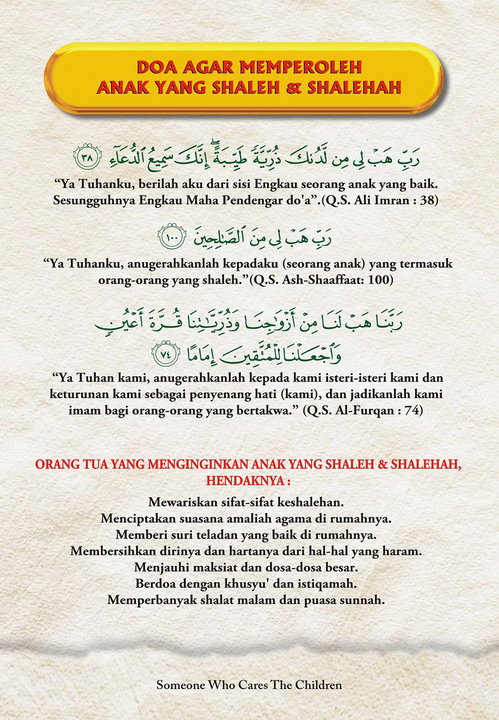 DOA AGAR MEMPEROLEH
ANAK YANG SHALEH & SHALEHAH
رَبِّ هَبْ لِي مِن لَّدُنكَ ذُرِّيَّةً طَيِّبَةً ۖ إِنَّكَ سَمِيعُ الدُّعَاءِ ٣٨
“Ya Tuhanku, berilah aku dari sisi Engkau seorang anak yang baik.
Sesungguhnya Engkau Maha Pendengar do'a”.(Q.S. Ali Imran : 38)
رَبِّ هَبْ لِي مِنَ الصَّالِحِينَ ١٠٠
“Ya Tuhanku, anugerahkanlah kepadaku (seorang anak) yang termasuk
orang-orang yang shaleh.”(Q.S. Ash-Shaaffaat: 100)
رَبَّنَا هَبْ لَنَا مِنْ أَزْوَاجِنَا وَذُرِّيَّاتِنَا قُرَّةَ أَعْيُنٍ
وَاجْعَلْنَا لِلْمُتَّقِينَ إِمَامًا ٧٤
“Ya Tuhan kami, anugerahkanlah kepada kami isteri-isteri kami dan
keturunan kami sebagai penyenang hati (kami), dan jadikanlah kami
imam bagi orang-orang yang bertakwa.” (Q.S. Al-Furqan : 74)
ORANG TUA YANG MENGINGINKAN ANAK YANG SHALEH & SHALEHAH,
HENDAKNYA :
Mewariskan sifat-sifat keshalehan.
Menciptakan suasana amaliah agama di rumahnya.
Memberi suri teladan yang baik di rumahnya.
Membersihkan dirinya dan hartanya dari hal-hal yang haram.
Menjauhi maksiat dan dosa-dosa besar.
Berdoa dengan khusyu' dan istiqamah.
Memperbanyak shalat malam dan puasa sunnah.
Someone Who Cares The Children